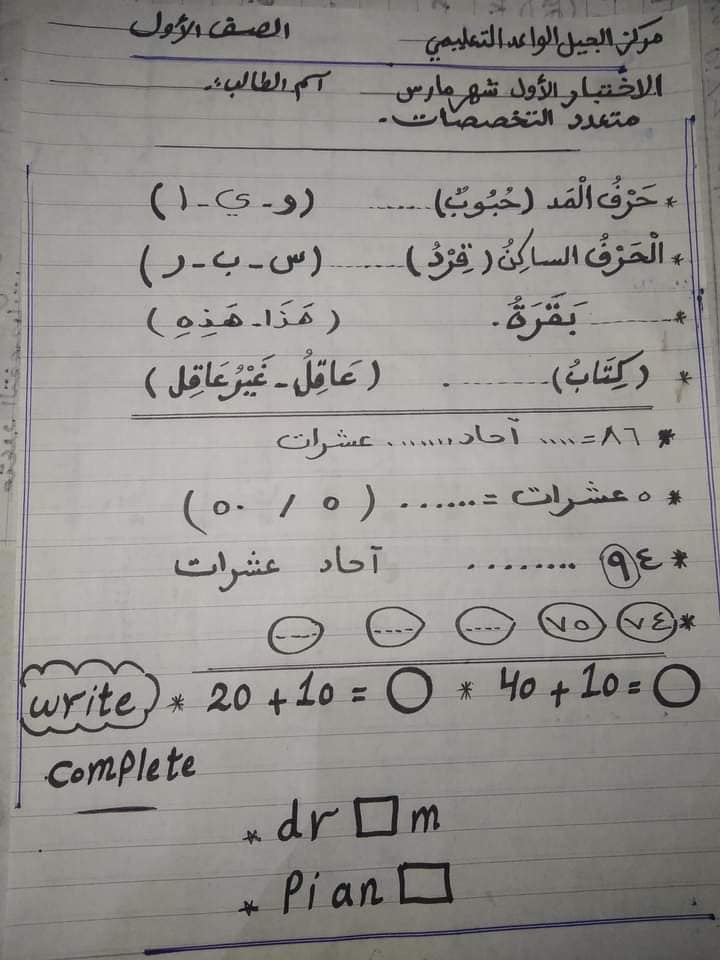 مركز الجيل الواعد التعليمي الصف الأول
الاختبار الأول شهر مارس اسم الطالب:
متعدد التخصصات.
* حَرْفُ الْمَد (حُبُوبٌ) ...... (و - ي - ا)
* الْحَرْفُ الساكِنُ (قِرْدٌ) ........ (س - ب - ر)
* ........ بَقَرَةٌ. (هَذَا - هَذِهِ)
* (كِتَابٌ) ......... (عَاقِلُ - غَيْرُ عَاقِل)
* ٨٦ = .... آحاد ....... عشرات
* ٥ عشرات = ...... (٥ / ٥٠)
* ٩٤ ........ آحاد عشرات
* ٧٤ ٧٥ .... .... ....
write * 20 + 10 = ○ * 40 + 10 = ○
complete
* dr □ m
* Pian □